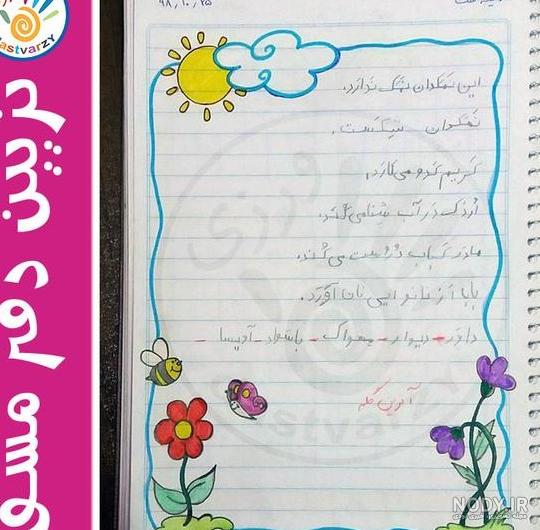 ۹۸/۱۰/۲۵
این نمکدان نمک ندارد.
نمکدان شکست.
کریم کدو می‌کارد.
اردک در آب شنا می‌کند.
مادر کباب درست می‌کند.
بابا از نانوایی نان آورد.
داور - دیوار - مسواک - باسواد - آویسا -
آفرین گلم
تزیین دفتر مسو
astvarzy
NODY.IR